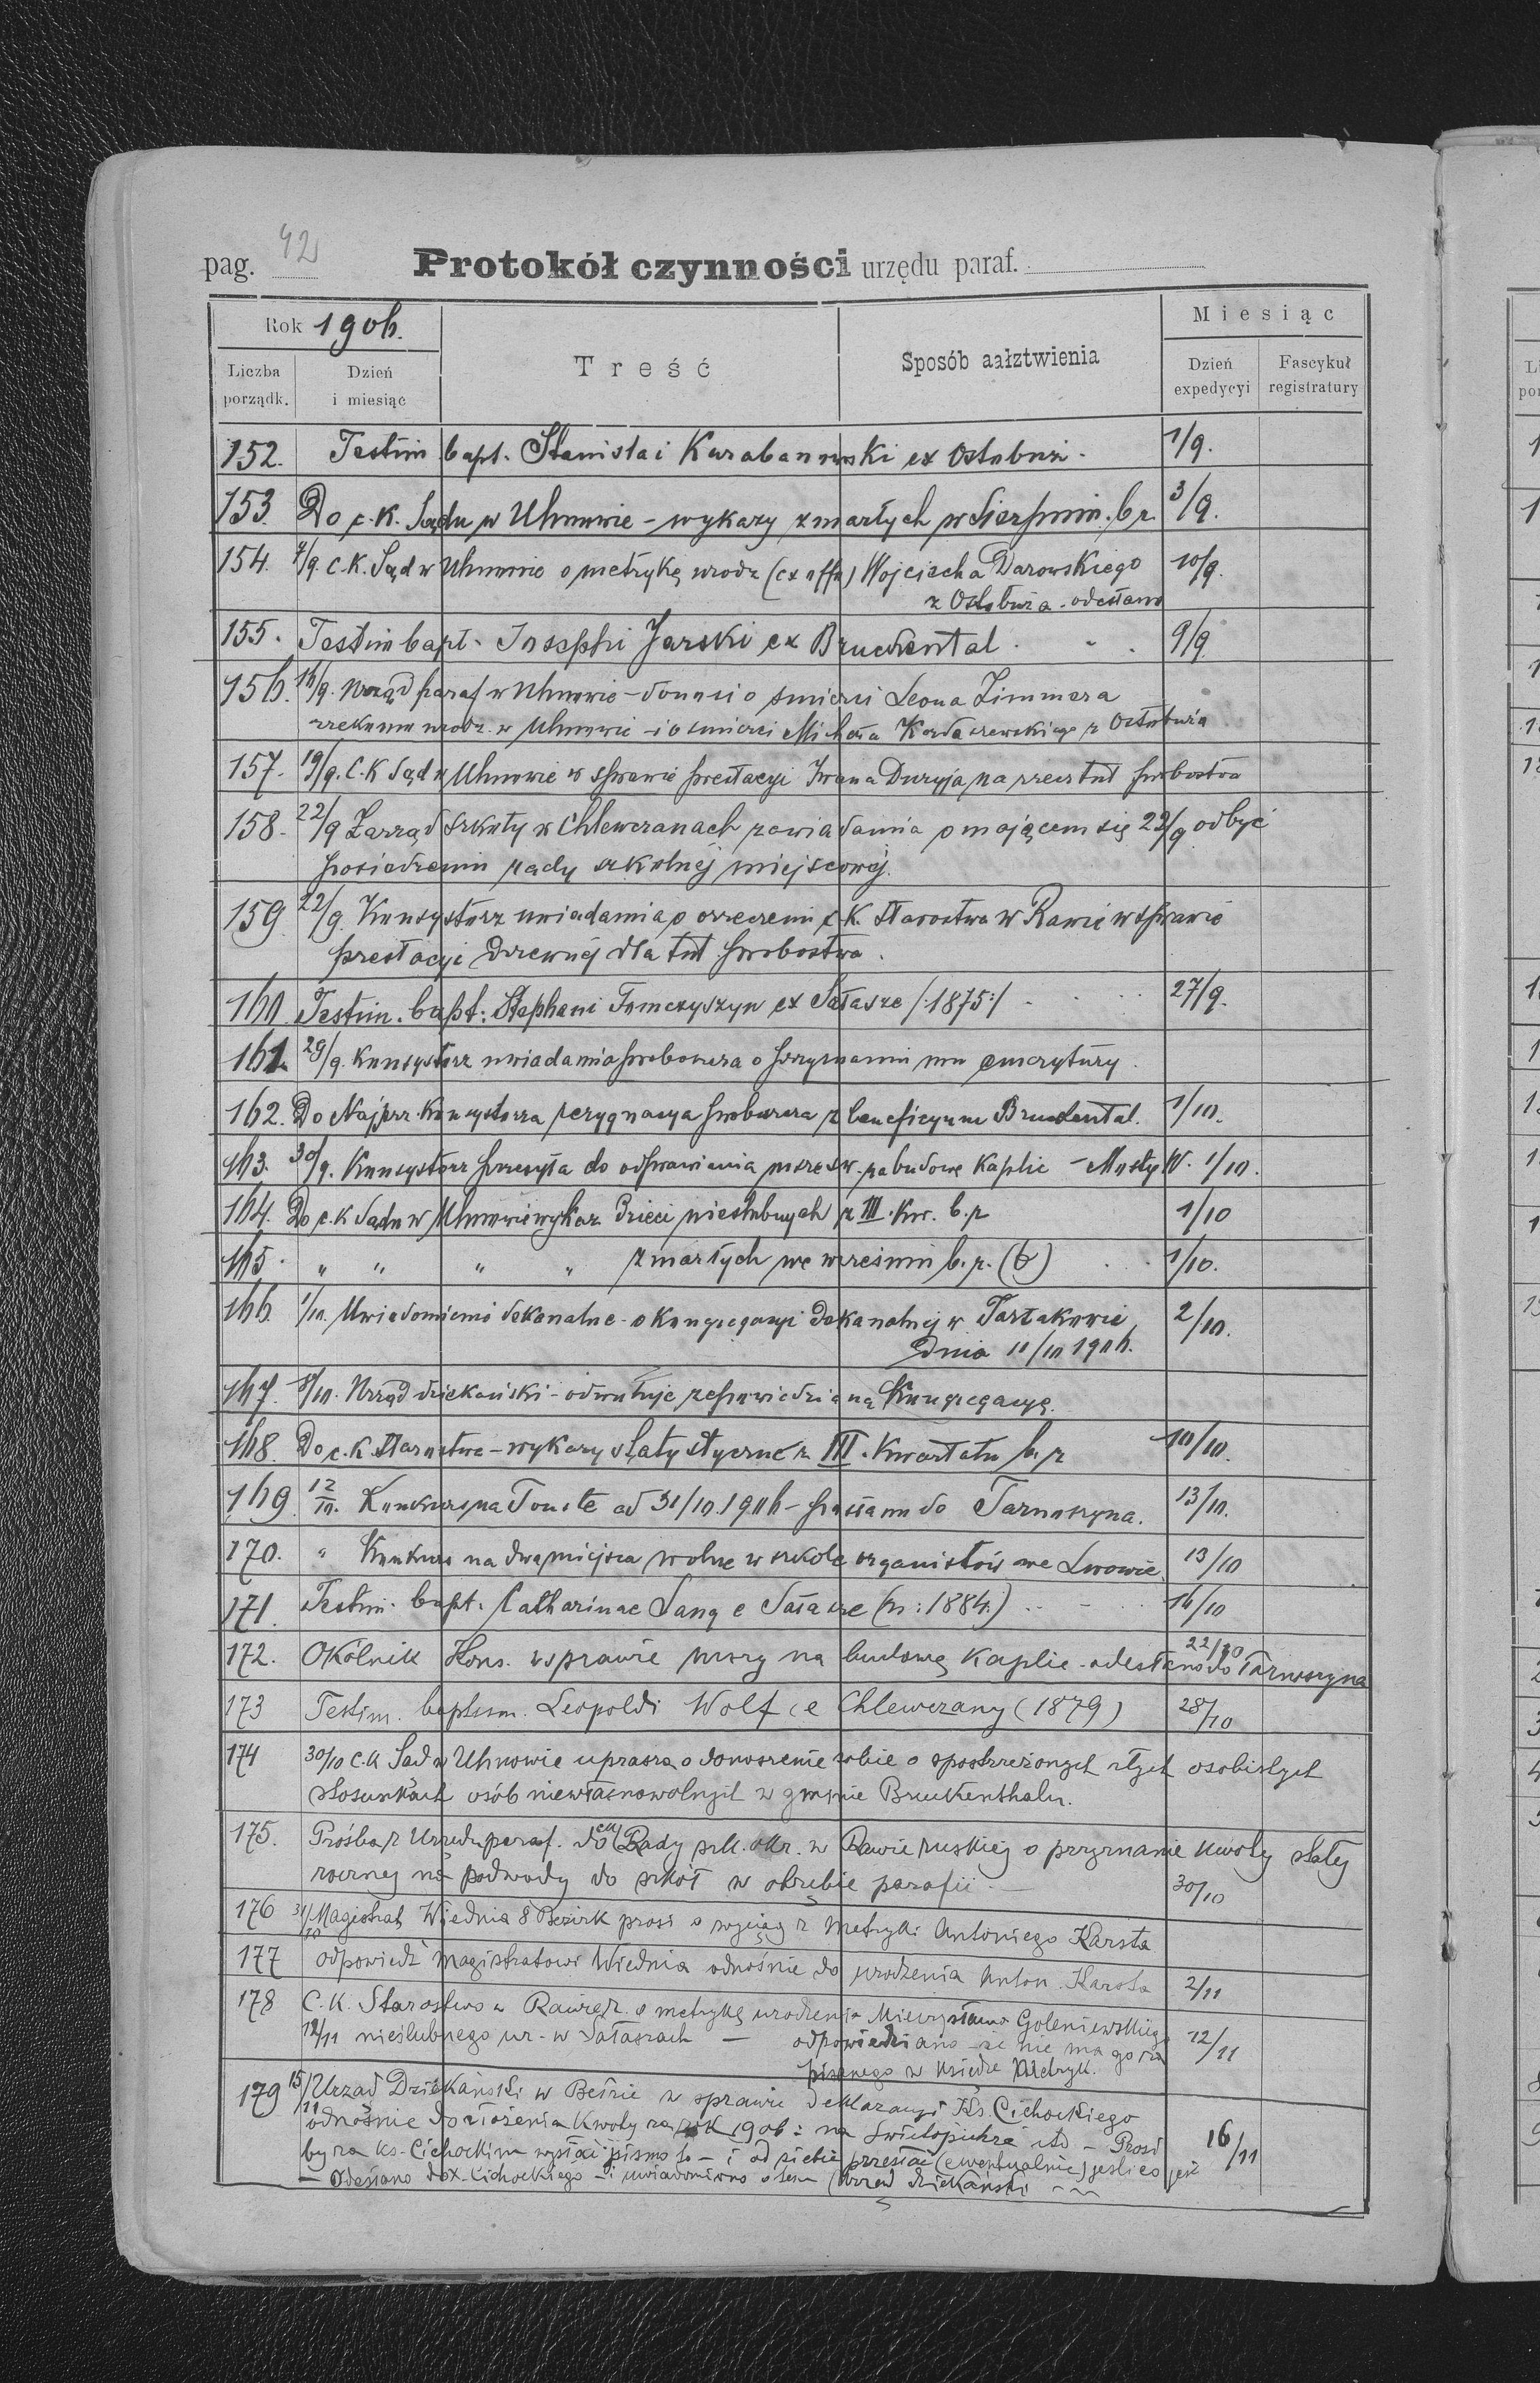 pag. 42
Protokół czynności urzędu paraf.
Rok 1906.
Liczba porządk.
Dzień i miesiąc
Treść
Sposób aałztwienia
Miesiąc
Dzień expedycyi
Fascykuł registratury
152. Testim bapt. Stanislai Karabanowski ex Ostobuż. 1/9.
153. Do c.K. Sądu w Uhnowie - wykazy zmarłych w Sierpniu. b.r. 3/9.
154. 7/9. C.K. Sąd w Uhnowie o metrykę urodz (ex offo) Wojciecha Darowskiego 10/9.
z Ostobuża - odesłano
155. Testim bapt. Josephi Jarski ex Bruckental. 9/9
156. 16/9. Urząd paraf w Uhnowie - donosi o śmierci Leona Zimmera
rzekomo urodz. w Uhnowie - i o śmierci Michała Kordaszewskiego z Ostobuża
157. 19/9. C.K Sąd w Uhnowie w sprawie prestacyi Iwana Duryja na rzecz tut probostwa
158. 22/9 Zarząd szkoły w Chlewczanach zawiadamia o mającem się 23/9 odbyć
posiedzeniu rady szkolnej miejscowej.
159. 22/9. Konsystorz uwiadamia o orzeczeniu c.K. Starostwa w Rawie w sprawie
prestacyi drzewnej dla tut. probostwa.
160. Testim. bapt: Stephani Tomczyszyn ex Sałasze /:1875:/ 27/9.
161. 29/9. Konsystorz uwiadamia proboszcza o przyznaniu mu emerytury.
162. Do Najprz. Konsystorza rezygnacya proboszcza z beneficyum Bruckental. 1/10.
163. 30/9. Konsystorz przesyła do odprawiania msze św. na budowę Kaplic - Mosty W. 1/10.
164. Do c.K Sądu w Uhnowie wykaz dzieci nieślubnych z III. Kw. b.r 1/10
165. " " " " zmarłych we wrześniu b.r. (6) 1/10.
166. 1/10. Uwiadomienie dekanalne - o Kongregacyi dekanalnej w Tartakowie 2/10.
dnia 11/10 1906.
167. 8/10. Urząd dziekański - odwołuje zapowiedzianą Kongregacyę.
168. Do c.K Starostwa - wykazy statystyczne z III. Kwartału b.r 10/10.
169. 12/10. Konkurs na Touste ad 31/10.1906 - posłano do Tarnoszyna. 13/10.
170. " Konkurs na dwa miejsca wolne w szkole organistów we Lwowie 13/10
171. Testim. bapt. Catharinae Lang e Sałasze (n: 1884.) 16/10
172. Okólnik Kons. w sprawie mszy na budowę Kaplic - odesłano do Tarnoszyna 22/10
173 Testim. baptism. Leopoldi Wolf (e Chlewczany (1879) 28/10
174 30/10 C.K Sąd w Uhnowie uprasza o donoszenie sobie o spostrzeżonych złych osobistych
stosunkach osób niewłasnowolnych w gminie Bruckenthalu.
175. Prośba z Urzędu paraf. do ck Rady szk. okr. w Rawie ruskiej o przyznanie kwoty stałej
rocznej na podwody do szkół w obrębie parafii. 30/10
176 31/10 Magistrat Wiednia 8 Bezirk prosi o wyciąg z metryki Antoniego Karsta
177 odpowiedź magistratowi Wiednia odnośnie do urodzenia Anton. Karsta 2/11
178 C.K. Starostwo w Rawie r. o metrykę urodzenia Mieczysława Goleniewskiego
12/11 nieślubnego ur. w Sałaszach - odpowiedziano że nie ma go za 12/11
pisanego w Księdze Metryk.
179 15/11 Urząd Dziekański w Bełzie w sprawie deklaracyi Ks. Cichockiego
odnośnie do złożenia kwoty za rok 1906 : na świętopietrze itd - Prosi
by za ks. Cichockim wysłać pismo to - i od siebie przesłać (ewentualnie) jeśli co jest 16/11
- Odesłano do X. Cichockiego - i uwiadomiono o tem Urząd dziekański